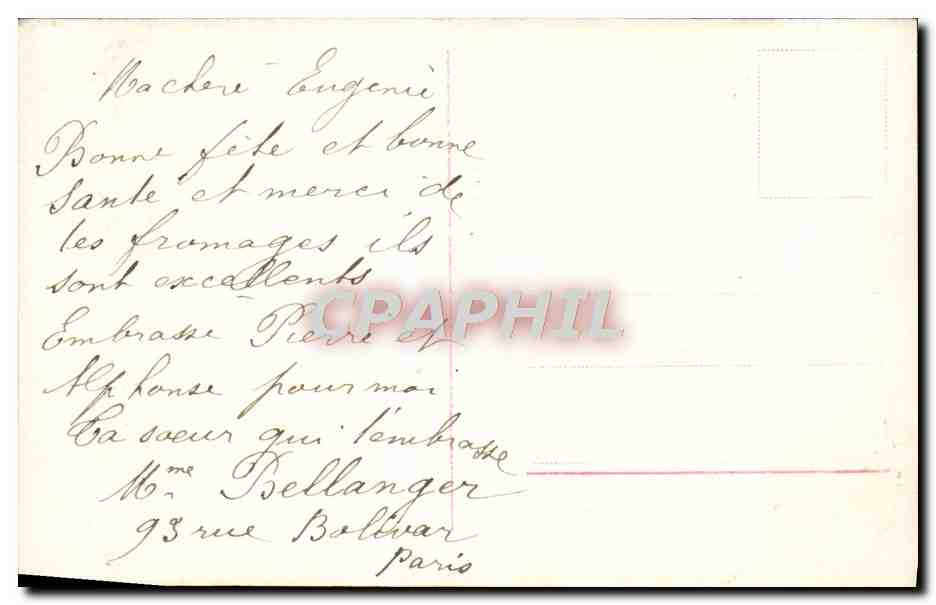 Ma chere Eugenie
Bonne fête et bonne
sante et merci de
tes fromages ils
sont excellents
CPAPHIL
Embrasse Pierre et
Alphonse pour moi
Ta sœur qui t'embrasse
Mme Bellanger
93 rue Bolivar
Paris